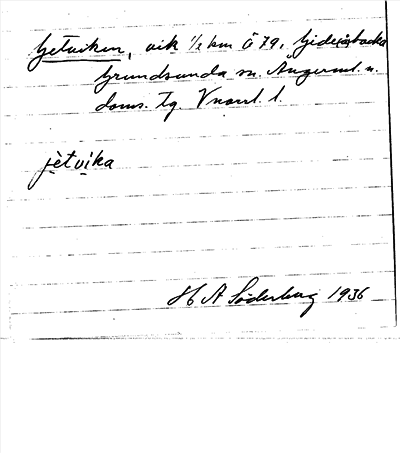 Getviken, vik ½ km Ö 79, Gideåbacka
Grundsunda sn. Ångerml. n.
doms. tg. Vnorrl. l.
jètvika
H A Söderberg 1936